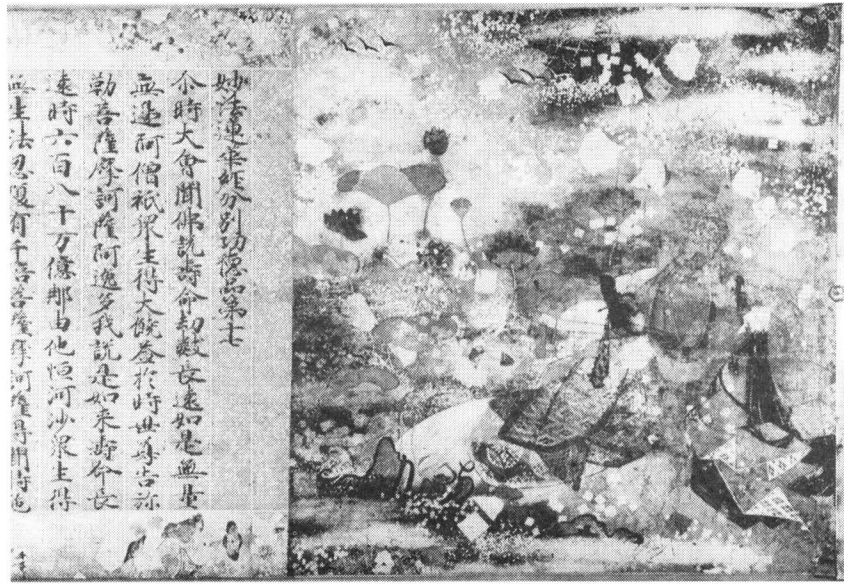 妙法蓮華経分別功徳品第十七
尓時大會聞佛説壽命劫數長遠如是無量
無邊阿僧祇衆生得大饒益於時世尊告弥
勒菩薩摩訶薩阿逸多我説是如来壽命長
遠時六百八十万億那由他恒河沙衆生得
無生法忍復有千菩薩摩訶薩得聞持